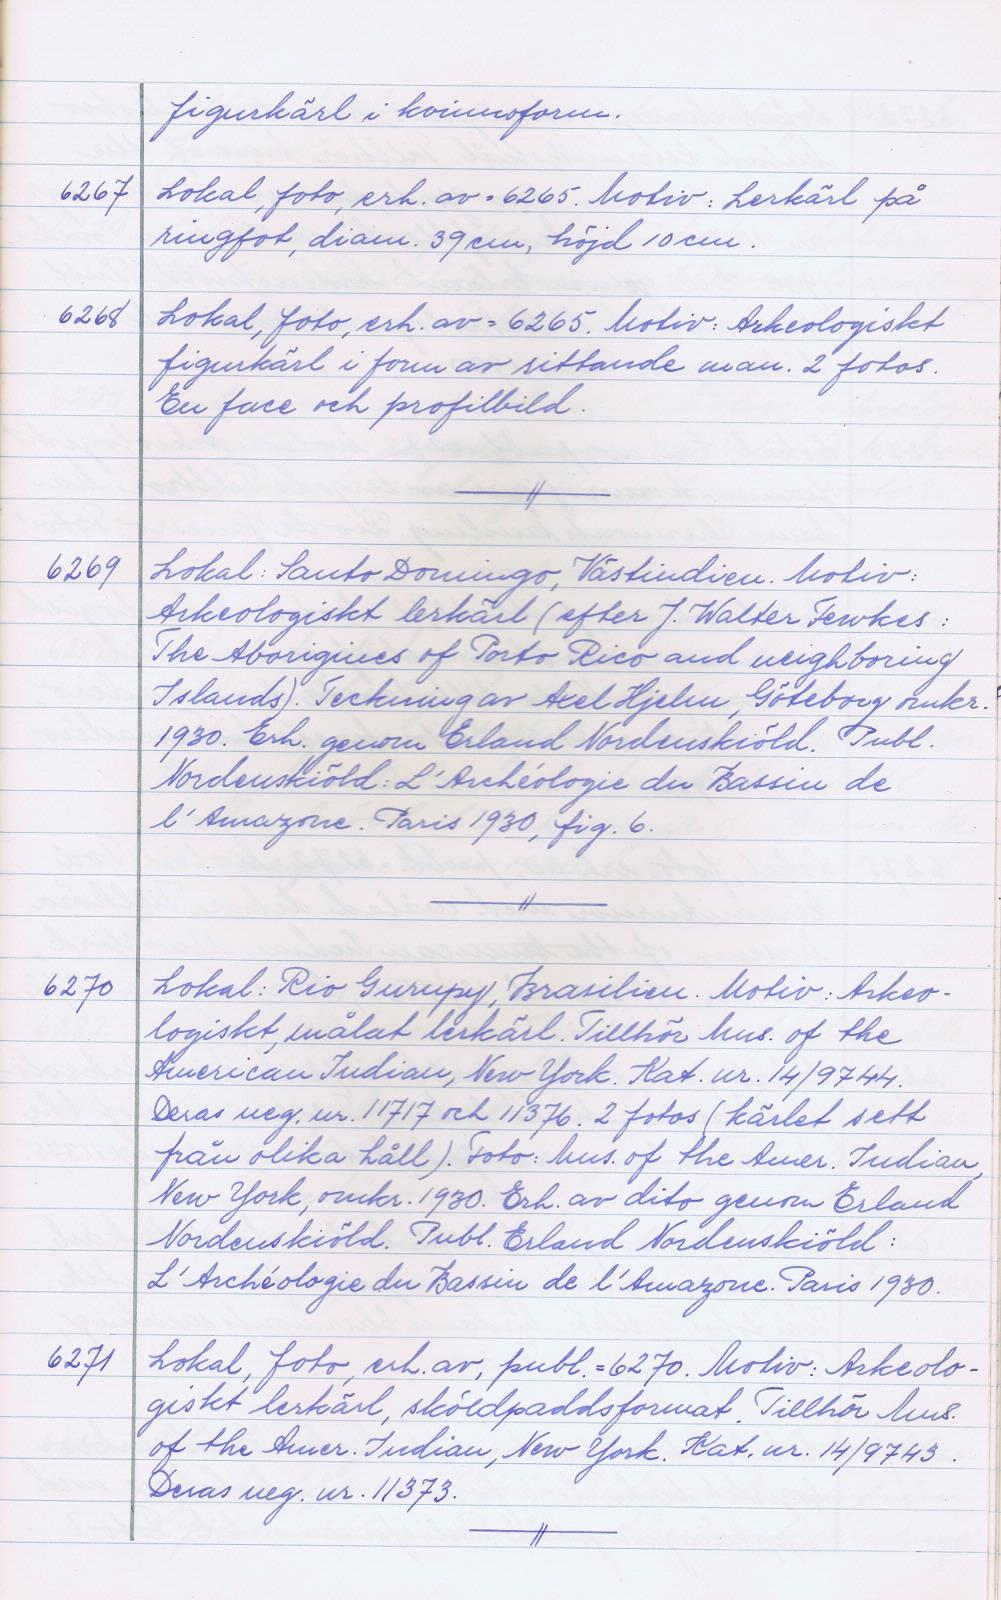 figurkärl i kvinnoform.
6267 Lokal, foto, erh. av = 6265. Motiv: Lerkärl på
ringfot, diam. 39 cm, höjd 10 cm.
6268 Lokal, foto, erh. av = 6265. Motiv: Arkeologiskt
figurkärl i form av sittande man. 2 fotos.
En face och profilbild.
6269 Lokal: Santo Domingo, Västindien. Motiv:
Arkeologiskt lerkärl (efter J. Walter Fewkes:
The Aborigines of Porto Rico and neighboring
Islands). Teckning av Axel Hjelm, Göteborg omkr.
1930. Erh. genom Erland Nordenskiöld. Publ.
Nordenskiöld: L'Archéologie du Bassin de
l'Amazone. Paris 1930, fig. 6.
6270 Lokal: Rio Gurupy, Brasilien. Motiv: Arkeo-
logiskt, målat lerkärl. Tillhör Mus. of the
American Indian, New York. Kat. nr. 14/9744.
Deras neg. nr. 11717 och 11376. 2 fotos (kärlet sett
från olika håll). Foto: Mus. of the Amer. Indian,
New York, omkr. 1930. Erh. av dito genom Erland
Nordenskiöld. Publ. Erland Nordenskiöld:
L'Archéologie du Bassin de l'Amazone. Paris 1930.
6271 Lokal, foto, erh. av, publ. = 6270. Motiv: Arkeolo-
giskt lerkärl, sköldpaddsformat. Tillhör Mus.
of the Amer. Indian, New York. Kat. nr. 14/9743.
Deras neg. nr. 11373.